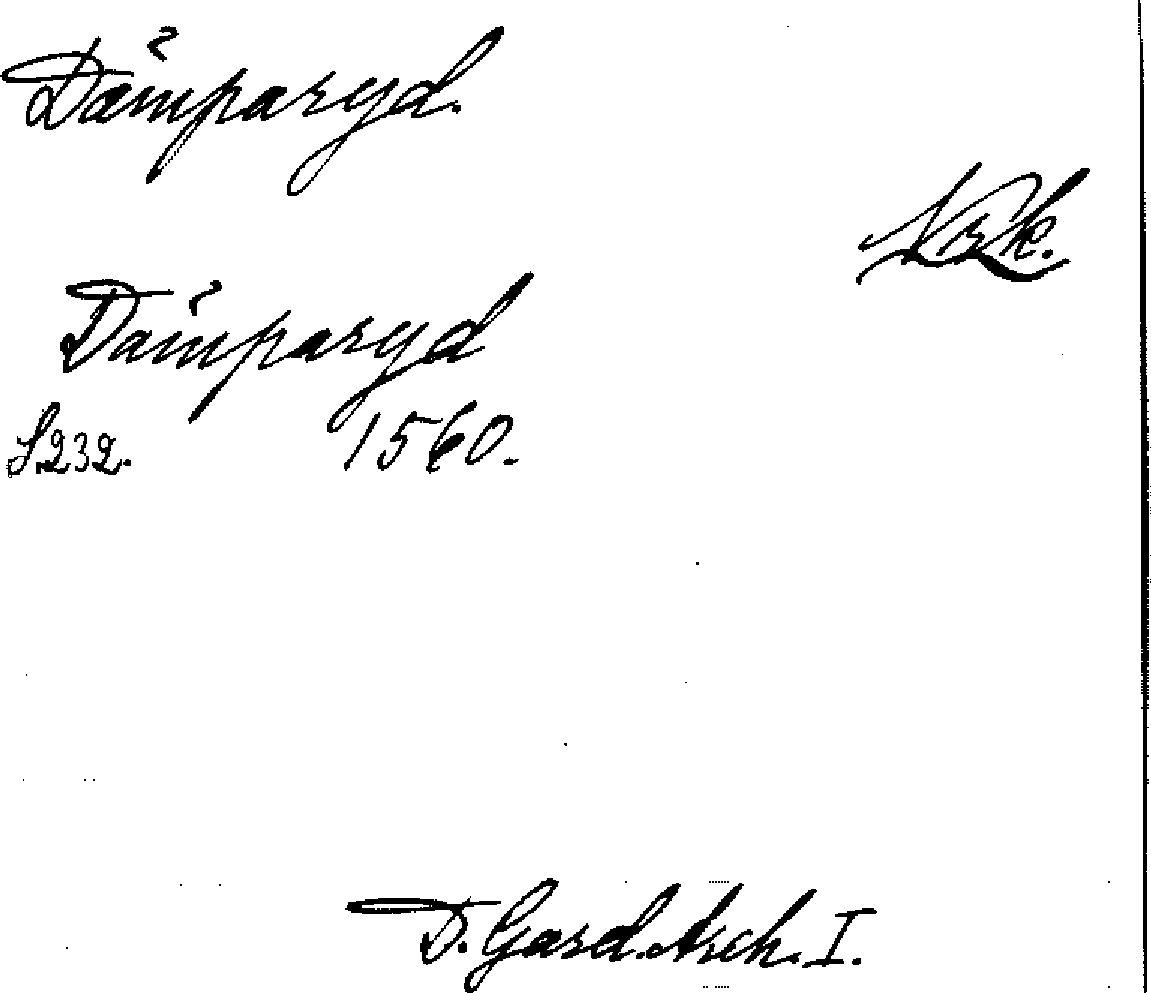 Damparyd.
Nrk.
Damparyd
S.232. 1560.
D. Gard. Arch. I.